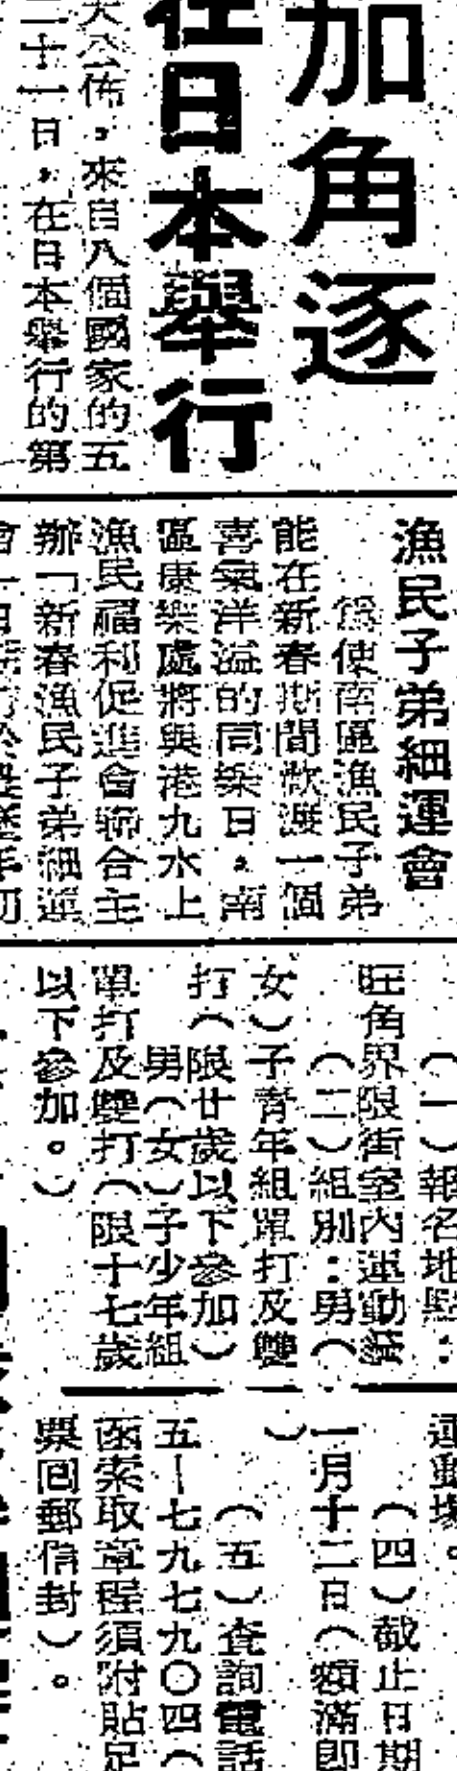 加角逐
在日本舉行
天公佈，來自八個國家的五
二十一日，在日本舉行的第
漁民子弟細運會
為使南區漁民子弟
能在新春期間歡渡一個
喜氣洋溢的同樂日，南
區康樂處將與港九水上
漁民福利促進會聯合主
辦「新春漁民子弟細運
（一）報名地點：
旺角界限街室內運動場
（二）組別：男（
女）子青年組單打及雙
打（限廿歲以下參加）
男（女）子少年組
單打及雙打（限十七歲
以下參加。）
運動場。
（四）截止日期
一月十二日（額滿即
）
（五）查詢電話
五－七九七九〇四（
函索取章程須附貼足
票回郵信封）。